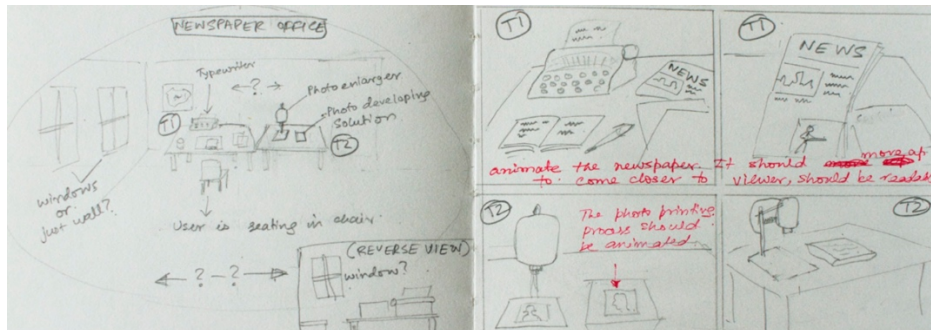 NEWSPAPER OFFICE
Typewriter
?
Photo enlarger
Photo developing
solution
T1
T2
windows
or
just wall?
User is seating in chair.
? - ?
(REVERSE VIEW)
window?
T1
NEWS
T1
NEWS
animate the newspaper. It should more up
to come closer to viewer, should be readab
T2
The photo printing
process should
be animated
T2